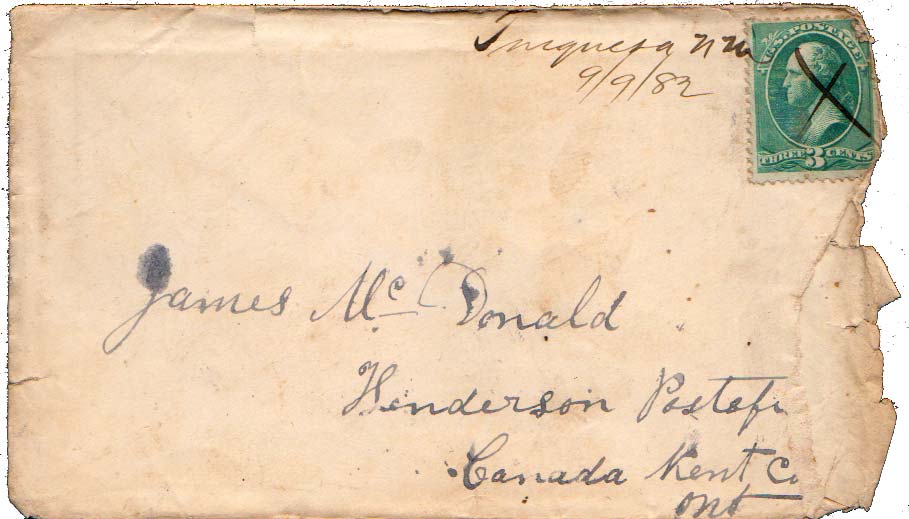 Tuequera N M
9/9/82
U.S. POSTAGE
THREE 3 CENTS
James Mc Donald
Henderson Postofi
Canada Kent Co
Ont